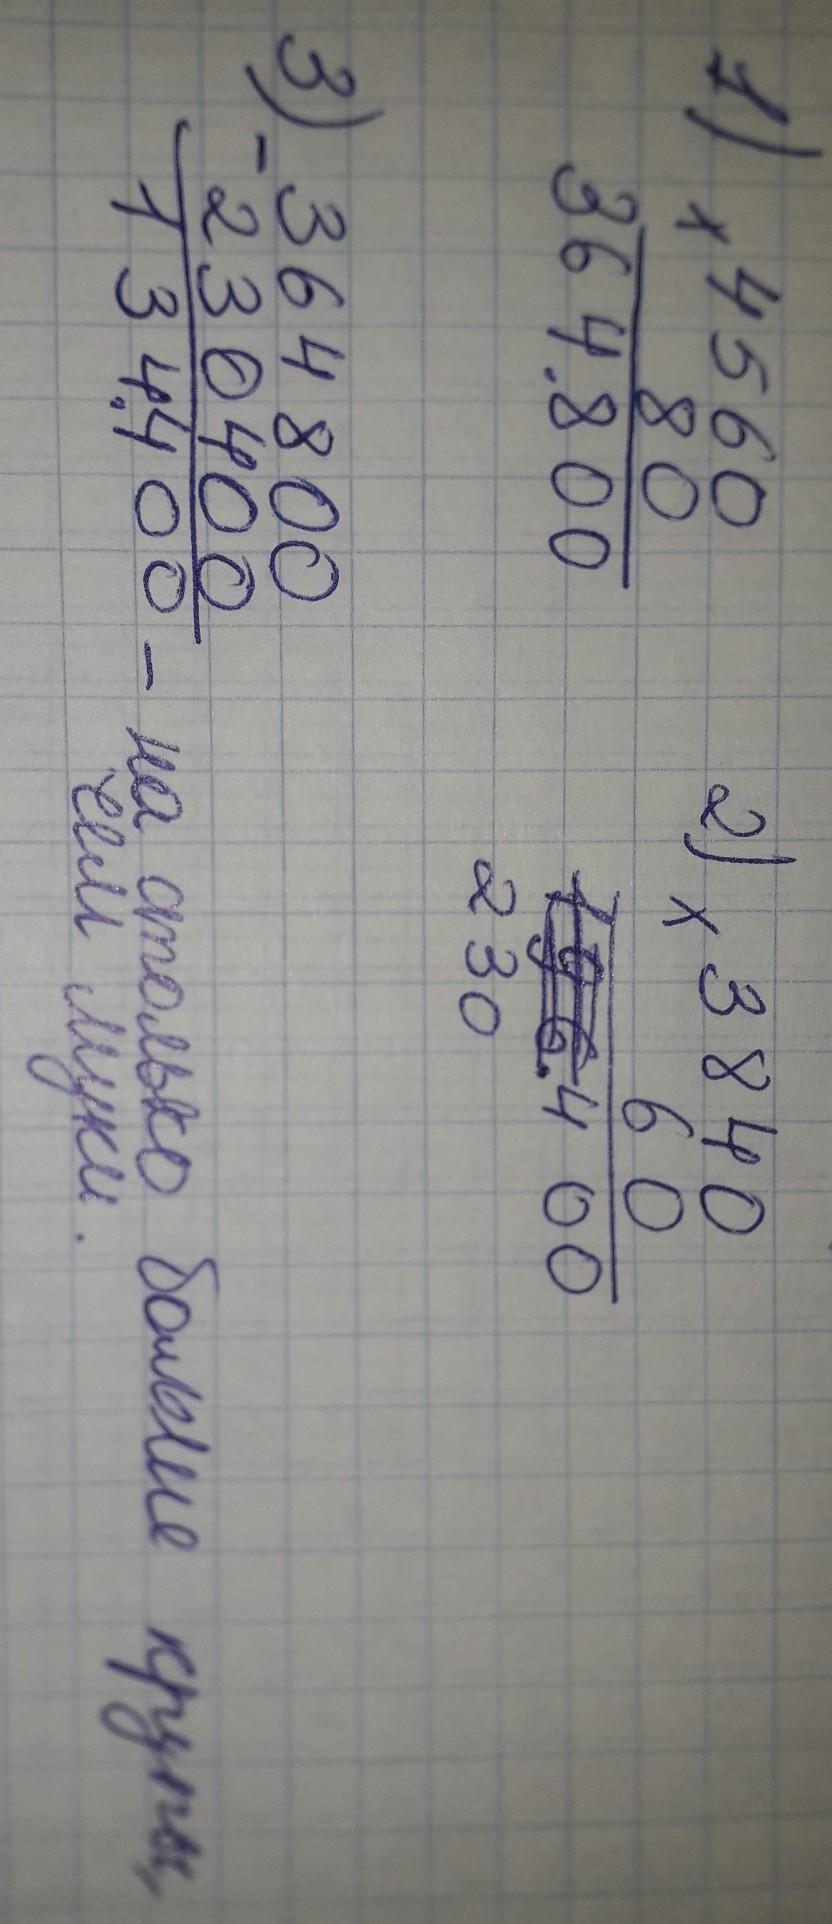 1) × 4560
80
364.800
2) × 3840
60
196.400
230
3) - 364800
230400
134.400 - на столько больше крупы,
чем муки.